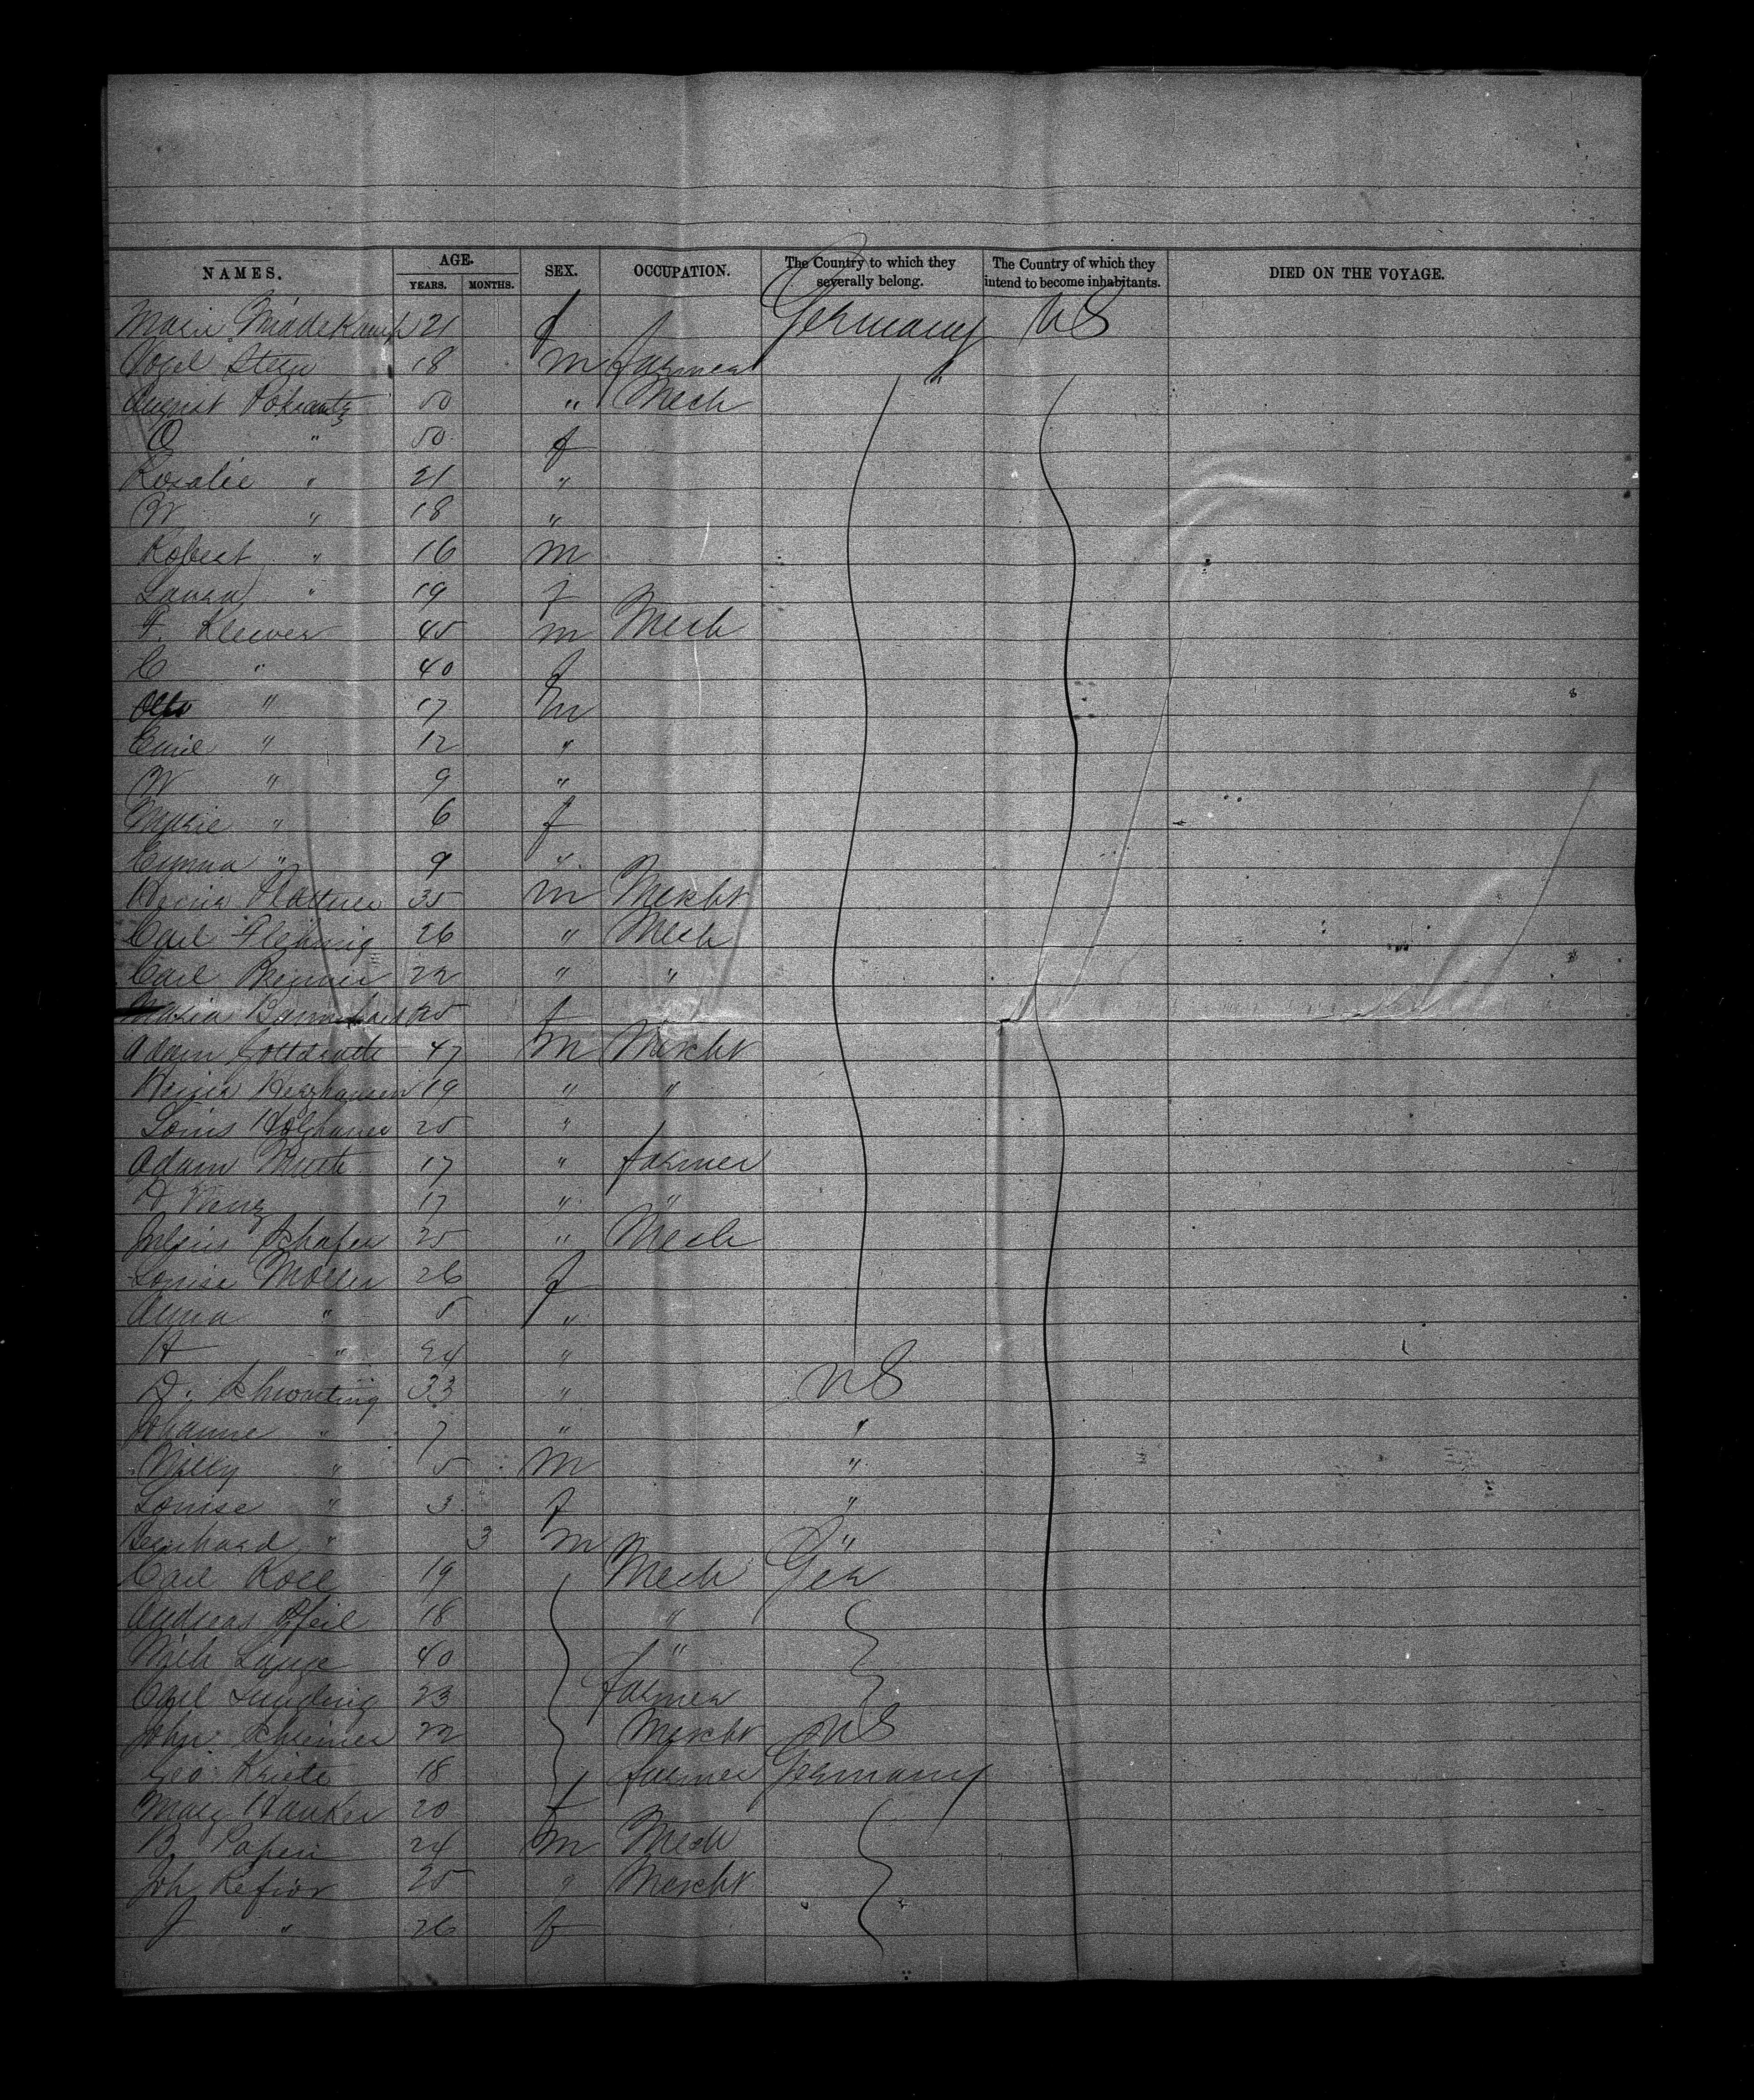 NAMES. AGE. SEX. OCCUPATION. The Country to which they severally belong. The Country of which they intend to become inhabitants. DIED ON THE VOYAGE.
YEARS. MONTHS.
Marie 21 f Germany US
Vogel Stein 18 m farmer "
August 50 " Mech
" 50 f
Rosalie " 21 "
W " 18 "
Robert " 16 m
Laura " 19 f
F. Klewer 45 m Mech
C " 40 f
Otto " 17 m
Emil " 12 "
W " 9 "
Marie " 6 f
Emma " 9 "
35 m Mercht
Carl Flehmig 26 " Mech
Carl Brenner 22 " "
Maria 25 f
Adam 47 m Mercht
19 " "
Louis 25 "
Adam Muth 17 " farmer
17 " "
Julius Schafer 25 " Mech
Louise Moller 26 f
Anna " 5 "
H " 24 "
D. Schwarting 33 " US
Johanne " 7 " "
Willy " 5 m "
Louise " 3 f "
Bernhard " 3 m "
Carl Koll 19 Mech Ger
Andreas Pfeil 18 "
Mich Lange 40 "
Carl 23 farmer
John Schriener 22 Mercht US
Geo Kriete 18 farmer Germany
Mary Hanker 20 f
B. Papen 24 m Mech
Joh Refior 25 " Mercht
J " 26 f